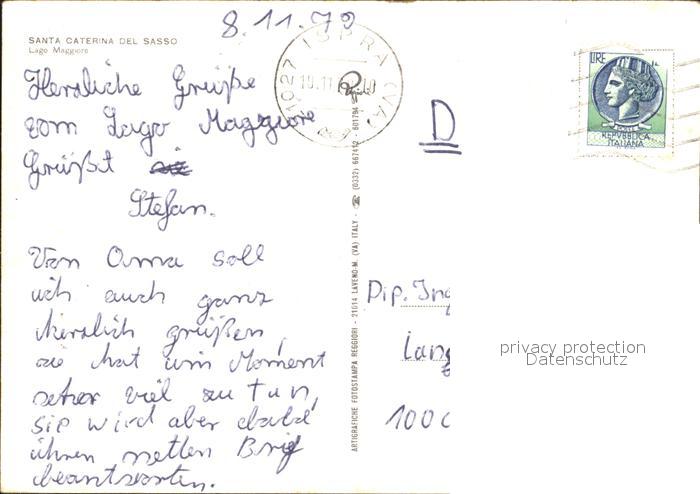 8.11.79
SANTA CATERINA DEL SASSO
Lago Maggiore
Herzliche Grüße
vom Lago Maggiore
Grüßt
Stefan.
Von Oma soll
ich auch ganz
herzlich grüßen,
sie hat im Moment
sehr viel zu tun,
sie wird aber bald
ihren netten Brief
beantworten.
ISPRA (VA)
21027
ARTIGRAFICHE FOTOSTAMPA REGGIORI - 21014 LAVENO-M. (VA) ITALY - ☎ (0332) 667412 - 601794
D
LIRE
POSTE
REPVBBLICA
ITALIANA
Dip. Ing
Lang
100
privacy protection
Datenschutz